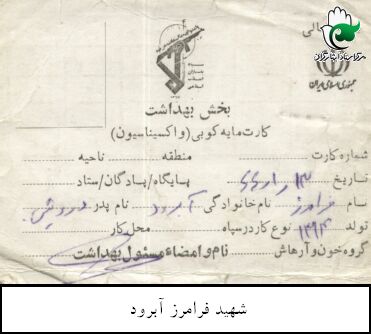 مرکز اسناد ایثارگران
تعالی
جمهوری اسلامی ایران
سپاه
پاسداران
انقلاب
اسلامی
بخش بهداشت
کارت مایه کوبی (واکسیناسیون)
شماره کارت منطقه ناحیه
تاریخ پایگاه/پادگان/ستاد
نام فرامرز نام خانوادگی آبرود نام پدر درویش
تولد نوع کار در سپاه محل کار
گروه خون و آرهاش نام و امضاء مسئول بهداشت
شهید فرامرز آبرود